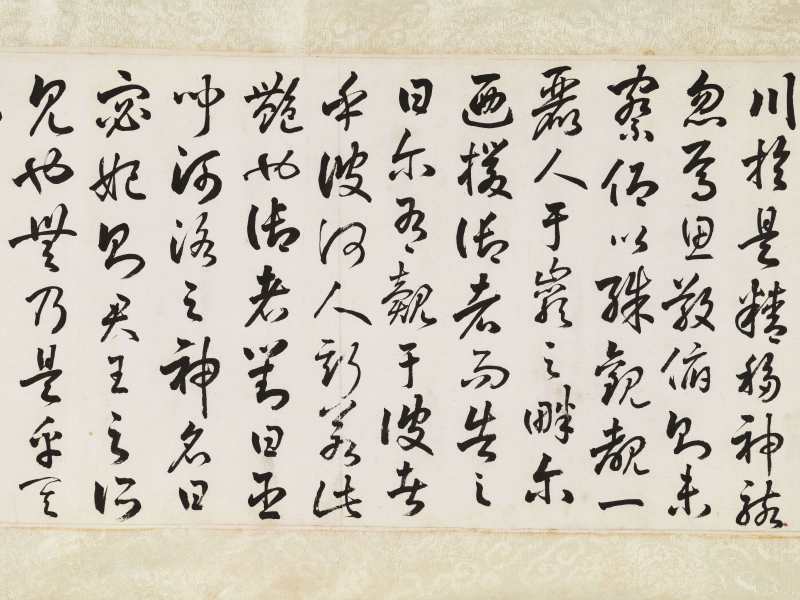 川於是精移神駭
忽焉思散俯則未
察仰以殊觀覩一
麗人于巖之畔尔
迺援御者而告之
曰尔有覿于彼者
乎彼何人斯若此
艷也御者對曰臣
聞河洛之神名曰
宓妃則君王之所
見也無乃是乎其